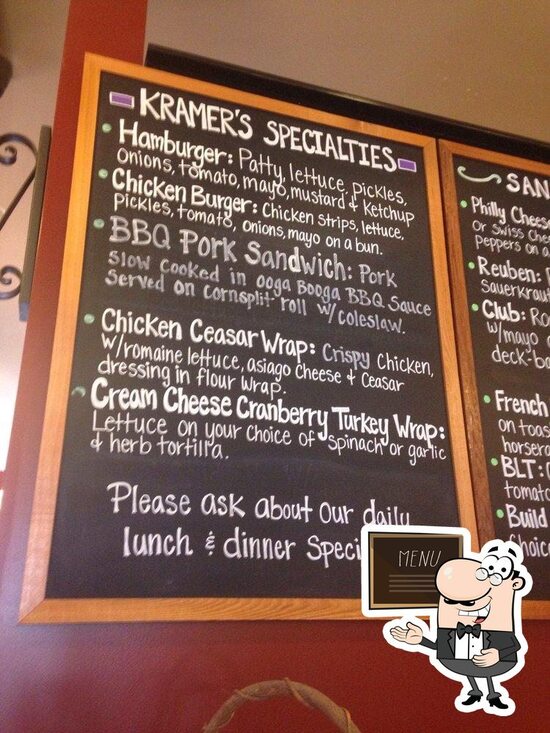 KRAMER'S SPECIALTIES
Hamburger: Patty, lettuce, pickles,
onions, tomato, mayo, mustard & Ketchup
Chicken Burger: Chicken strips, lettuce,
pickles, tomato, onions, mayo on a bun.
BBQ Pork Sandwich: Pork
slow cooked in ooga Booga BBQ Sauce
served on cornsplit roll w/coleslaw.
Chicken Ceasar Wrap: Crispy Chicken,
w/romaine lettuce, asiago cheese & Ceasar
dressing in flour wrap.
Cream Cheese Cranberry Turkey Wrap:
Lettuce on your choice of spinach or garlic
& herb tortilla.
Please ask about our daily
lunch & dinner Speci
SAN
Philly Chees
or Swiss Chee
Peppers on a
Reuben:
Sauerkraut
Club:
w/mayo
deck-ba
French
on toas
horsera
BLT:
tomato
Build
Choice
MENU